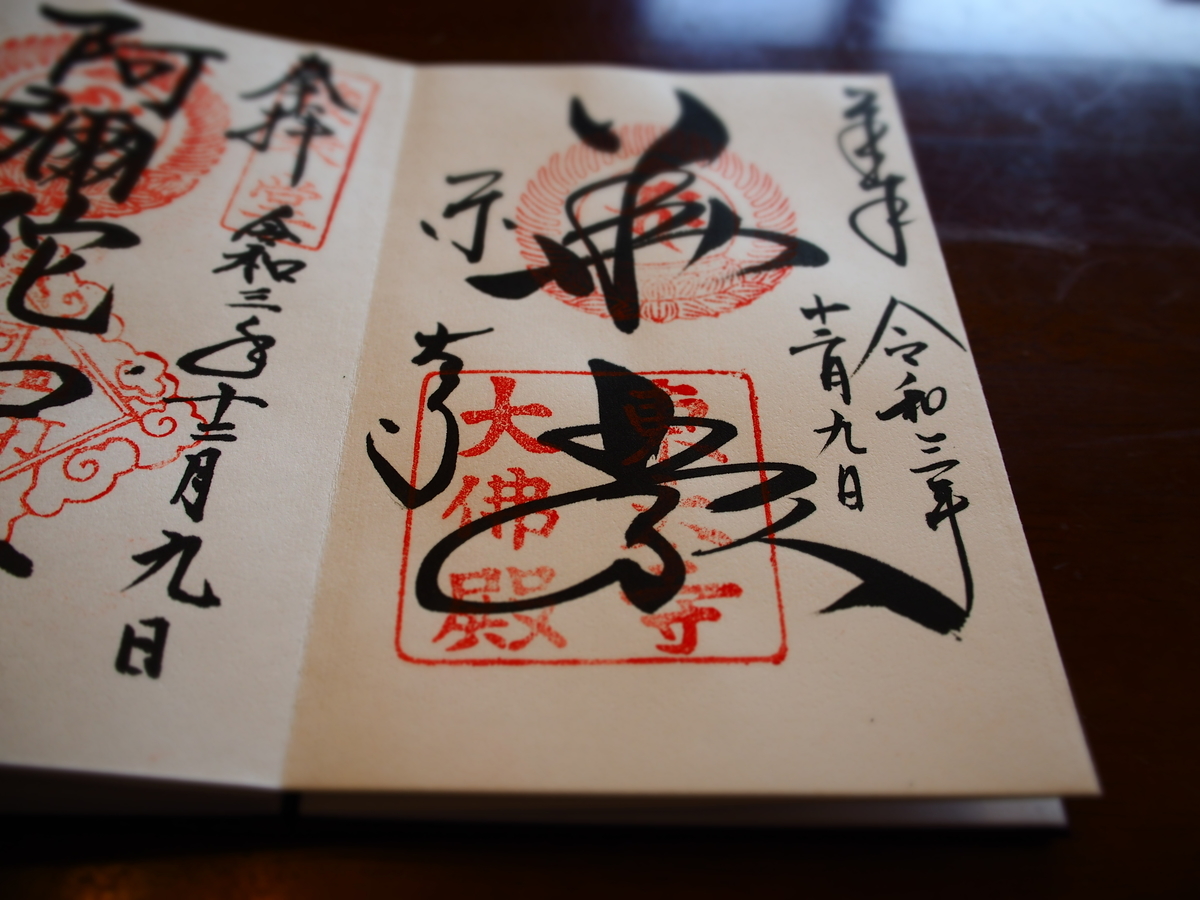 奉拝
令和三年
十二月九日
華厳
東大寺
東大寺
大佛殿
奉拝
令和三年十二月九日
阿彌陀